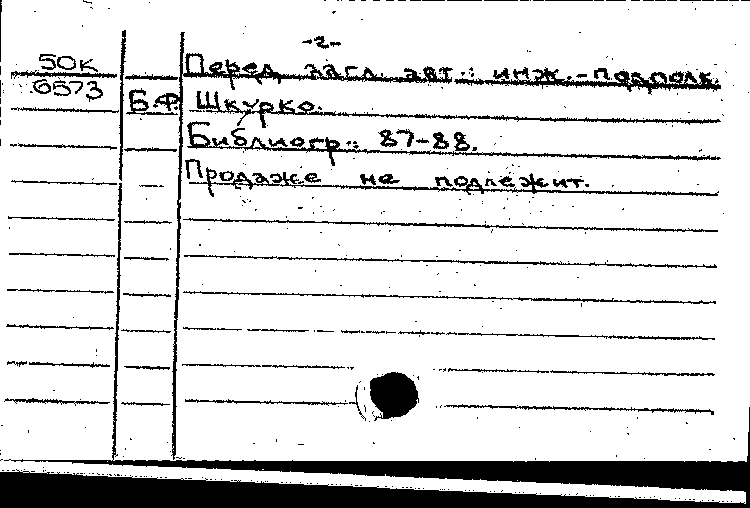 -2-
50К Перед загл. авт.: инж.-подполк.
6573 Б.Ф. Шкурко.
Библиогр.: 87-88.
Продаже не подлежит.